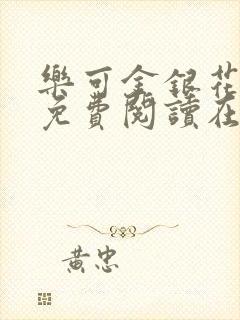 樂可金銀花
免費閱讀在
黃忠